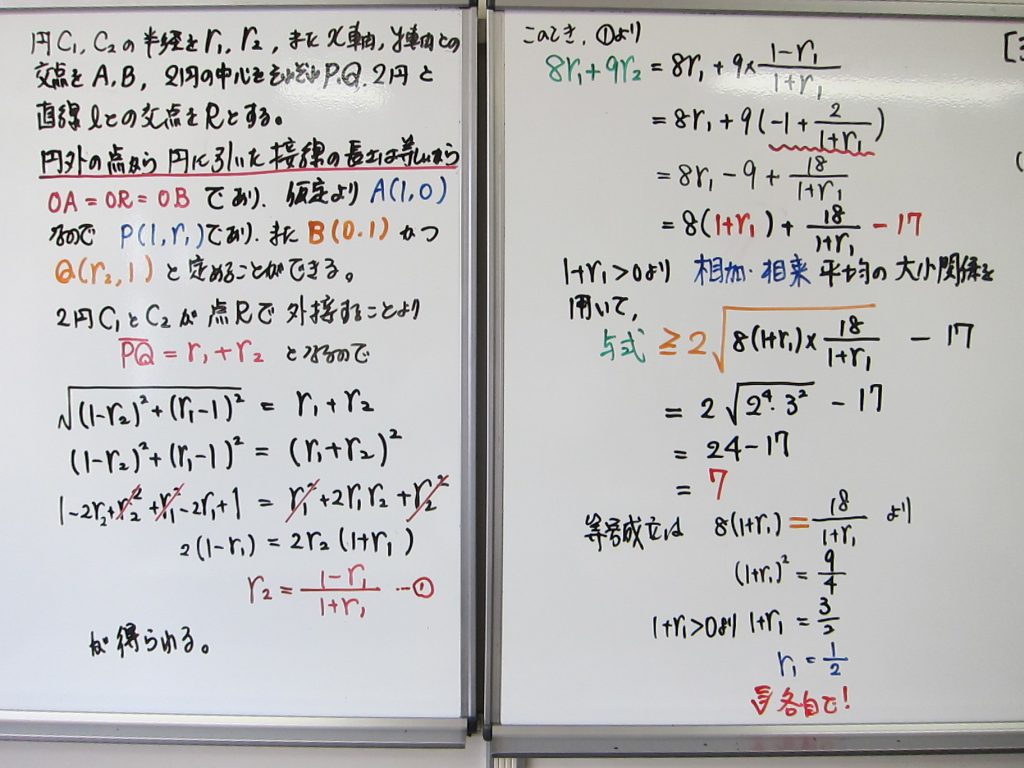 円C₁, C₂の半径をr₁, r₂, またx軸, y軸との
交点をA, B, 2円の中心をそれぞれP, Q. 2円と
直線lとの交点をRとする。
円外の点から円に引いた接線の長さは等しいから
OA=OR=OB であり. 仮定より A(1,0)
なので P(1,r₁)であり. また B(0.1) かつ
Q(r₂,1) と定めることができる。
2円C₁とC₂が点Rで外接することより
PQ = r₁+r₂ となるので
√((1-r₂)²+(r₁-1)²) = r₁+r₂
(1-r₂)²+(r₁-1)² = (r₁+r₂)²
1-2r₂+r₂²+r₁²-2r₁+1 = r₁²+2r₁r₂+r₂²
2(1-r₁) = 2r₂(1+r₁)
r₂ = (1-r₁)/(1+r₁) …①
が得られる。
このとき, ①より
8r₁+9r₂ = 8r₁+9×(1-r₁)/(1+r₁)
= 8r₁+9(-1+2/(1+r₁))
= 8r₁-9+18/(1+r₁)
= 8(1+r₁)+18/(1+r₁)-17
1+r₁>0より 相加・相乗平均の大小関係を
用いて,
与式 ≧ 2√(8(1+r₁)×18/(1+r₁)) - 17
= 2√(2⁴・3²) - 17
= 24-17
= 7
等号成立は 8(1+r₁) = 18/(1+r₁) より
(1+r₁)² = 9/4
1+r₁>0より 1+r₁ = 3/2
r₁ = 1/2
各自で!